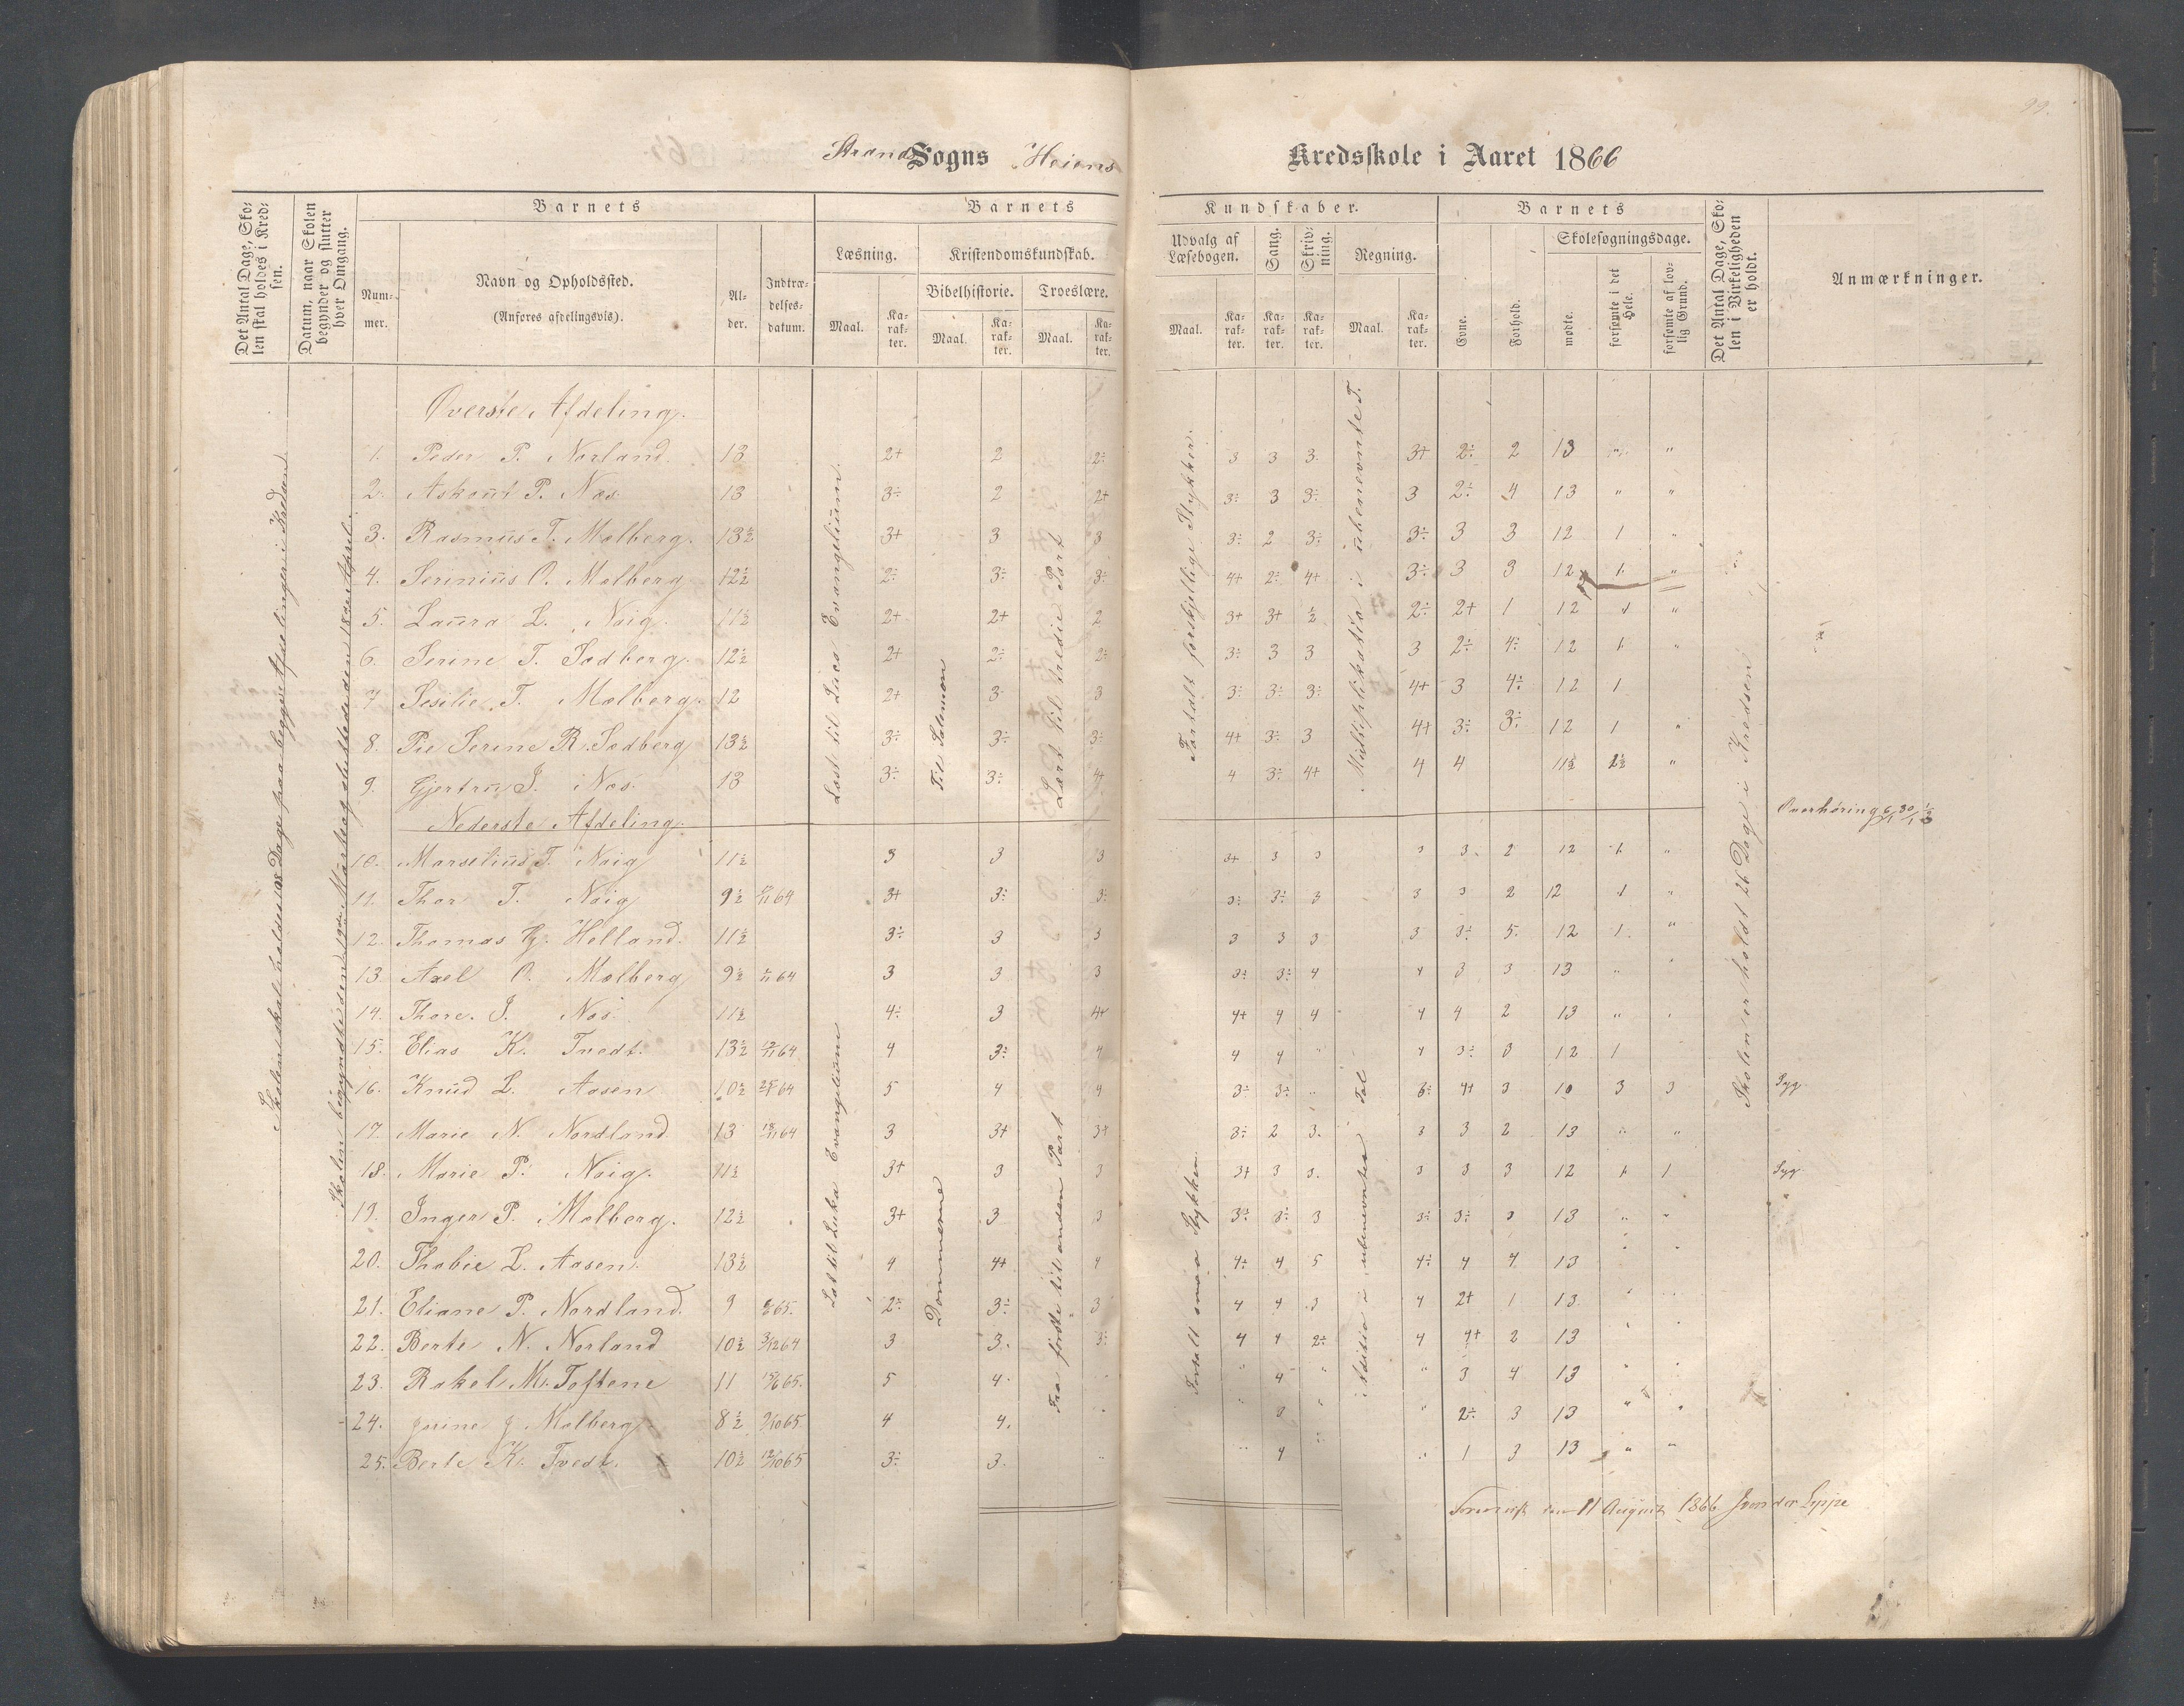 99.
Strands Sogns Heiens Kredsskole i Aaret 1866
Det Antal Dage, Skolen skal holdes i Kredsen.
Datum, naar Skolen begynder og slutter hver Omgang.
Barnets
Nummer.
Navn og Opholdssted.
(Anføres afdelingsvis).
Alder.
Indtrædelsesdatum.
Barnets
Kundskaber.
Læsning.
Maal.
Karakter.
Kristendomskundskab.
Bibelhistorie.
Troeslære.
Maal.
Karakter.
Maal.
Karakter.
Udvalg af Læsebogen.
Maal.
Karakter.
Sang.
Karakter.
Skrivning.
Karakter.
Regning.
Maal.
Karakter.
Barnets
Evne.
Forhold.
Skolesøgningsdage.
mødte.
forsømte i det Hele.
forsømte af lovlig Grund.
Det Antal Dage, Skolen i Virkeligheden er holdt.
Anmærkninger.
Skolen skal holdes 108 Dage paa begge Afdelinger i Kredsen
Skolen begyndte den 19de Marts og sluttede den 18de April.
Øverste Afdeling.
Læst til Lucs Evangelium
Til Salomon
Lært til tredie Part
Fortalt forskjellige Stykker
Multiplikatio i ubenevnte T.
Skolen er holdt 26 Dage i Kredsen
1. Peder P. Norland 13 2+ 2 2÷ 3 3 3. 3+ 2÷ 2 13 " "
2. Askout P. Næs 13 3÷ 2 2+ 3÷ 3 3÷ 3 2÷ 4 13 " "
3. Rasmus T. Molberg. 13½ 3+ 3 3 3÷ 2 3÷ 3÷ 3 3 12 1 "
4. Serinius O. Molberg 12½ 2÷ 3÷ 3÷ 4+ 2÷ 4+ 3÷ 3 3 12 1. "
5. Laura L. Naig. 11½ 2+ 2+ 2 3+ 3+ ½ 2÷ 2+ 1 12 1 "
6. Serine T. Sodberg. 12½ 2+ 2÷ 2÷ 3÷ 3 3 3 2÷ 4÷ 12 1. "
7 Sesilie T. Molberg. 12 2+ 3 3 3÷ 3÷ 3÷ 4+ 3 4÷ 12 1
8. Pie Serine R. Sodberg 13½ 3÷ 3÷ 3÷ 4+ 3÷ 3 4+ 3÷ 3÷ 12 1 "
9. Gjertru J. Næs. 13 3÷ 3÷ 4+ 4 3÷ 4+ 4 4 11½ 1½ "
Overhøring
Nederste Afdeling.
Læs til Luka Evangelium
Dommerne
Fra første til anden Part
Fortalt smaa Stykker
Aditio i ubenevnten Tal
10. Marselius T. Naig 11½ 3 3 3 3+ 3 3 3 3. 2 12 1. "
11. Thor T. Naig 9½ 3+ 3÷ 3÷ 3÷ 3÷ 3 3 3 2 12 1 "
12. Thomas Hj. Helland. 11½ 3÷ 3 3 3 3 3 3 3÷ 5. 12 1. "
13. Axel O. Molberg 9½ 3 3 3 3÷ 3÷ 4 4 3 3 13 " "
14. Thore. J. Næs 11½ 4÷ 3 4+ 4+ 4 4 4 4 2 13 "
15. Elias K. Tvedt. 13½ 4 3÷ 4 4 4 " 4 3÷ 3 12 1
16. Knud L. Aasen 10½ 5 4 4 3÷ 3÷ " 3÷ 4+ 3 10 3 3 Syg.
17. Marie N. Nordland 13 3 3+ 3+ 3÷ 2 3. 3 3 2 13 " "
18. Marie P. Naig. 11½ 3+ 3 3 3+ 3 3. 3 3 3 12 1. 1 Syg.
19. Inger P. Molberg. 12½ 3+ 3 3 3÷ 3÷ 3 3÷ 3÷ 3 13 " "
20. Thobie L. Aasen. 13½ 4 4+ 4 4÷ 4 5 4÷ 4 4 13 "
21. Eliane P. Nordland. 9 2÷ 3÷ 3 4 4 3 4 2+ 1 13.
22. Berte N. Norland 10½ 3 3. 3÷ 4 4 2÷ 4 4+ 2 13
23. Rakel M. Toftene 11 5 4 " " 4 " " 3 4 13
24. Josine J Molberg. 8½ 4 4. " " 3 " " 2÷ 3 13 " "
25. Berte K. Tvedt. 10½ 3÷ 3. " " 4 " " 1 3 13 " "
11 August 1866 von der Lippe